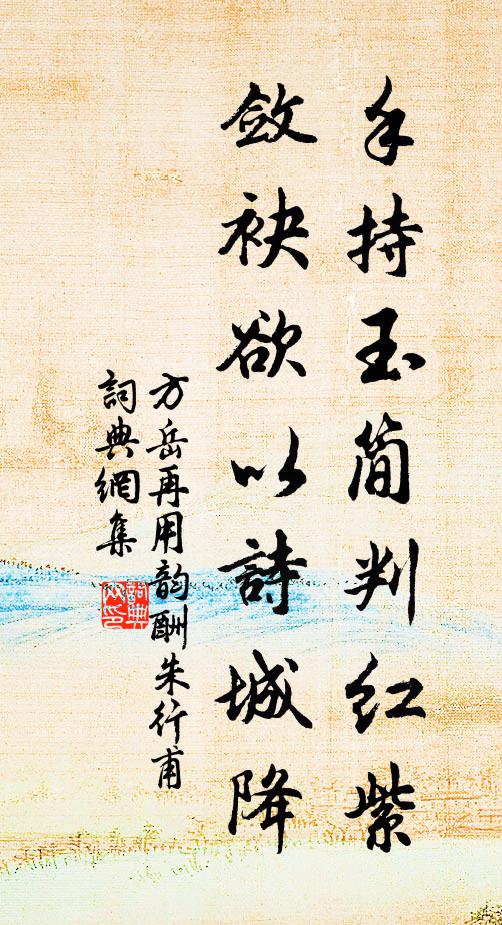 手持玉简判红紫
敛袂欲以詩城降
方岳再用韵酬朱行甫
詞典網集
詞典